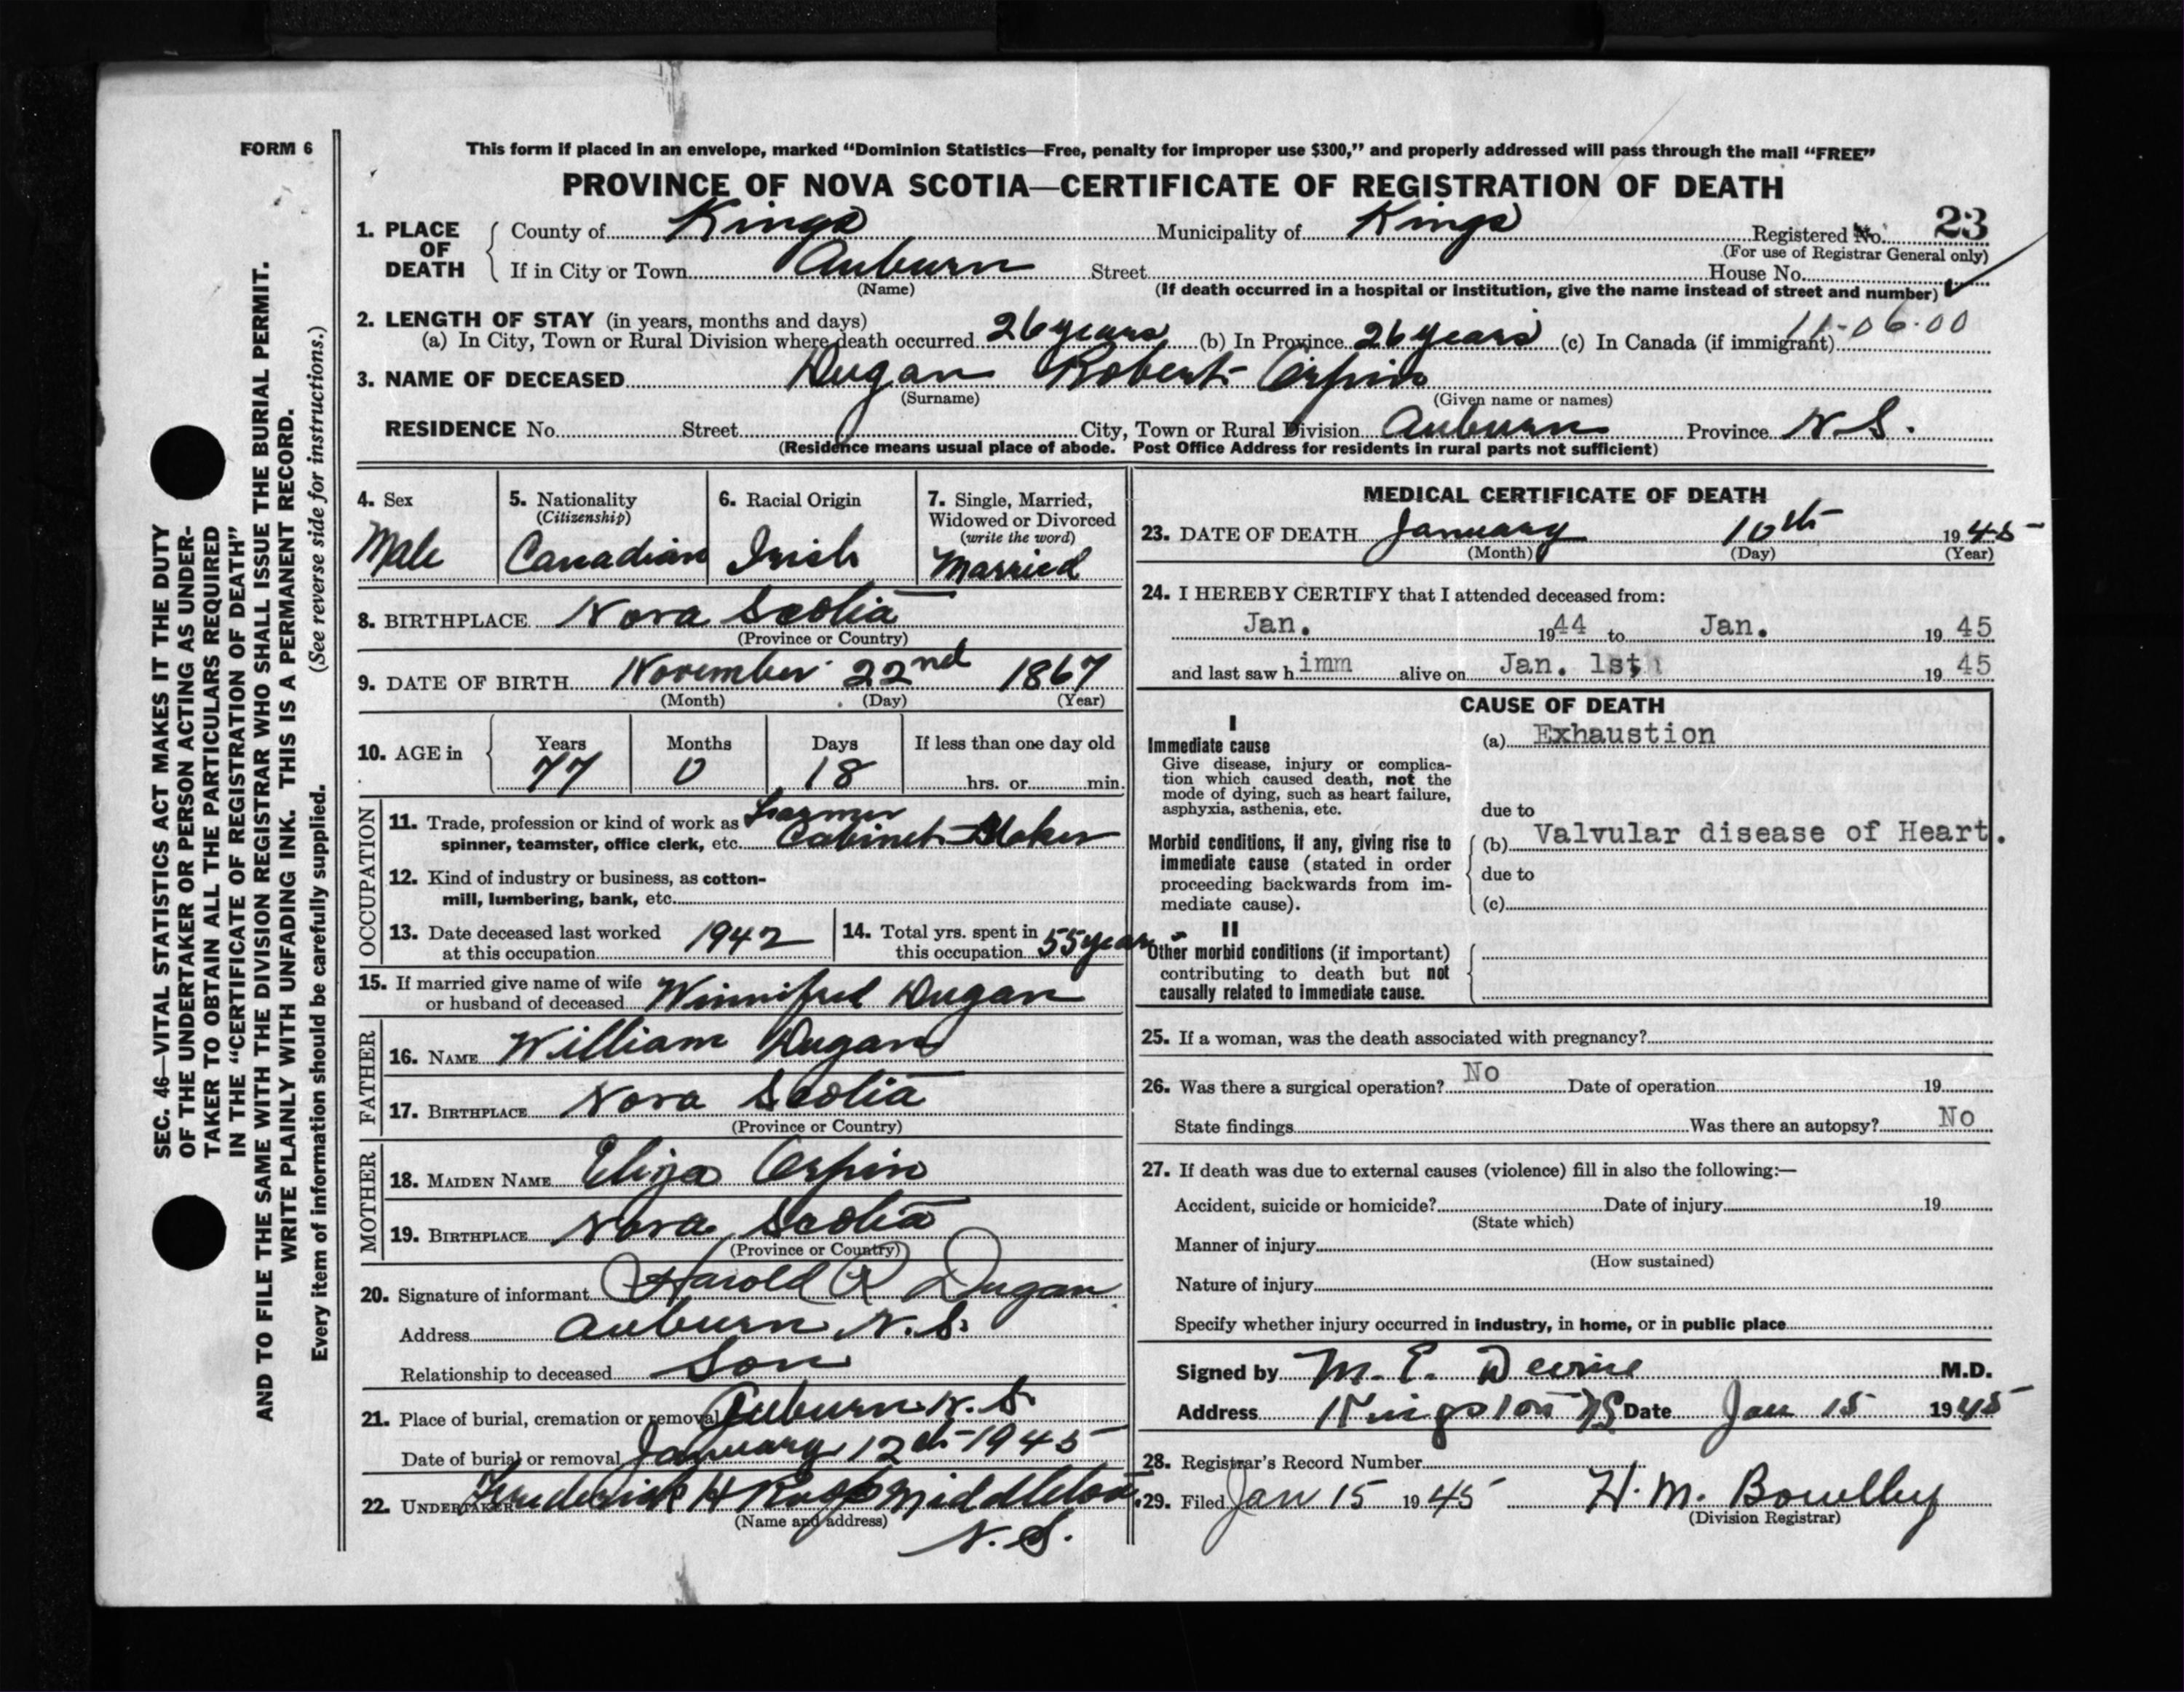 FORM 6
SEC. 46—VITAL STATISTICS ACT MAKES IT THE DUTY
OF THE UNDERTAKER OR PERSON ACTING AS UNDER-
TAKER TO OBTAIN ALL THE PARTICULARS REQUIRED
IN THE "CERTIFICATE OF REGISTRATION OF DEATH"
AND TO FILE THE SAME WITH THE DIVISION REGISTRAR WHO SHALL ISSUE THE BURIAL PERMIT.
WRITE PLAINLY WITH UNFADING INK. THIS IS A PERMANENT RECORD.
Every item of information should be carefully supplied. (See reverse side for instructions.)
This form if placed in an envelope, marked "Dominion Statistics—Free, penalty for improper use $300," and properly addressed will pass through the mail "FREE"
PROVINCE OF NOVA SCOTIA—CERTIFICATE OF REGISTRATION OF DEATH
1. PLACE OF DEATH County of Kings Municipality of Kings Registered No. 23
(For use of Registrar General only)
If in City or Town Auburn Street House No.
(Name) (If death occurred in a hospital or institution, give the name instead of street and number)
2. LENGTH OF STAY (in years, months and days) 11-06-00
(a) In City, Town or Rural Division where death occurred 26 years (b) In Province 26 years (c) In Canada (if immigrant)
3. NAME OF DECEASED Dugan Robert Orpin
(Surname) (Given name or names)
RESIDENCE No. Street City, Town or Rural Division Auburn Province N.S.
(Residence means usual place of abode. Post Office Address for residents in rural parts not sufficient)
4. Sex
Male
5. Nationality
(Citizenship)
Canadian
6. Racial Origin
Irish
7. Single, Married,
Widowed or Divorced
(write the word)
Married
8. BIRTHPLACE Nova Scotia
(Province or Country)
9. DATE OF BIRTH November 22nd 1867
(Month) (Day) (Year)
10. AGE in Years Months Days If less than one day old
77 0 18 hrs. or min.
OCCUPATION
11. Trade, profession or kind of work as Farmer
spinner, teamster, office clerk, etc. Cabinet-Maker
12. Kind of industry or business, as cotton-
mill, lumbering, bank, etc.
13. Date deceased last worked
at this occupation 1942
14. Total yrs. spent in
this occupation 55 years
15. If married give name of wife
or husband of deceased Winnifred Dugan
FATHER
16. NAME William Dugan
17. BIRTHPLACE Nova Scotia
(Province or Country)
MOTHER
18. MAIDEN NAME Eliza Orpin
19. BIRTHPLACE Nova Scotia
(Province or Country)
20. Signature of informant Harold R Dugan
Address Auburn N.S.
Relationship to deceased Son
21. Place of burial, cremation or removal Auburn N.S.
Date of burial or removal January 12th 1945
22. UNDERTAKER Frederick H Middleton
(Name and address) N.S.
MEDICAL CERTIFICATE OF DEATH
23. DATE OF DEATH January 10th 1945
(Month) (Day) (Year)
24. I HEREBY CERTIFY that I attended deceased from:
Jan. 1944 to Jan. 1945
and last saw h imm alive on Jan. 1st, 1945
CAUSE OF DEATH
I
Immediate cause
Give disease, injury or complica-
tion which caused death, not the
mode of dying, such as heart failure,
asphyxia, asthenia, etc.
(a) Exhaustion
due to
Morbid conditions, if any, giving rise to
immediate cause (stated in order
proceeding backwards from im-
mediate cause).
(b) Valvular disease of Heart.
due to
(c)
II
Other morbid conditions (if important)
contributing to death but not
causally related to immediate cause.
25. If a woman, was the death associated with pregnancy?
26. Was there a surgical operation? No Date of operation 19
State findings Was there an autopsy? No
27. If death was due to external causes (violence) fill in also the following:—
Accident, suicide or homicide? Date of injury 19
(State which)
Manner of injury
(How sustained)
Nature of injury
Specify whether injury occurred in industry, in home, or in public place
Signed by M. E. Devine M.D.
Address Kingston NS Date Jan 15 1945
28. Registrar's Record Number
29. Filed Jan 15 1945 H. M. Bowlby
(Division Registrar)